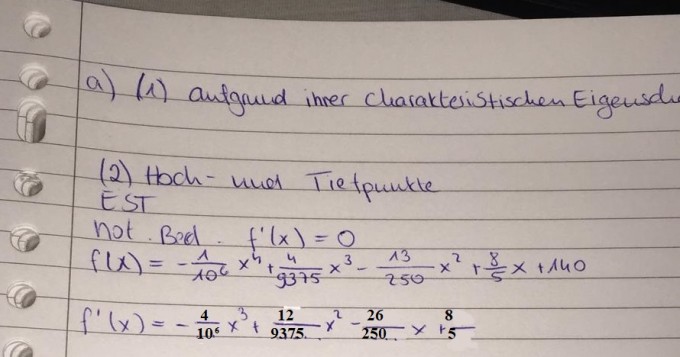 a) (1) aufgrund ihrer charakteristischen
(2) Hoch- und Tiefpunkte
EST
not. Bed. f'(x) = 0
f(x) = - 1/10⁶ x⁴ + 4/9375 x³ - 13/250 x² + 8/5 x + 140
f'(x) = - 4/10⁶ x³ + 12/9375 x² - 26/250 x + 8/5